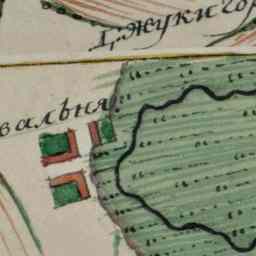 Джуки го
вальня